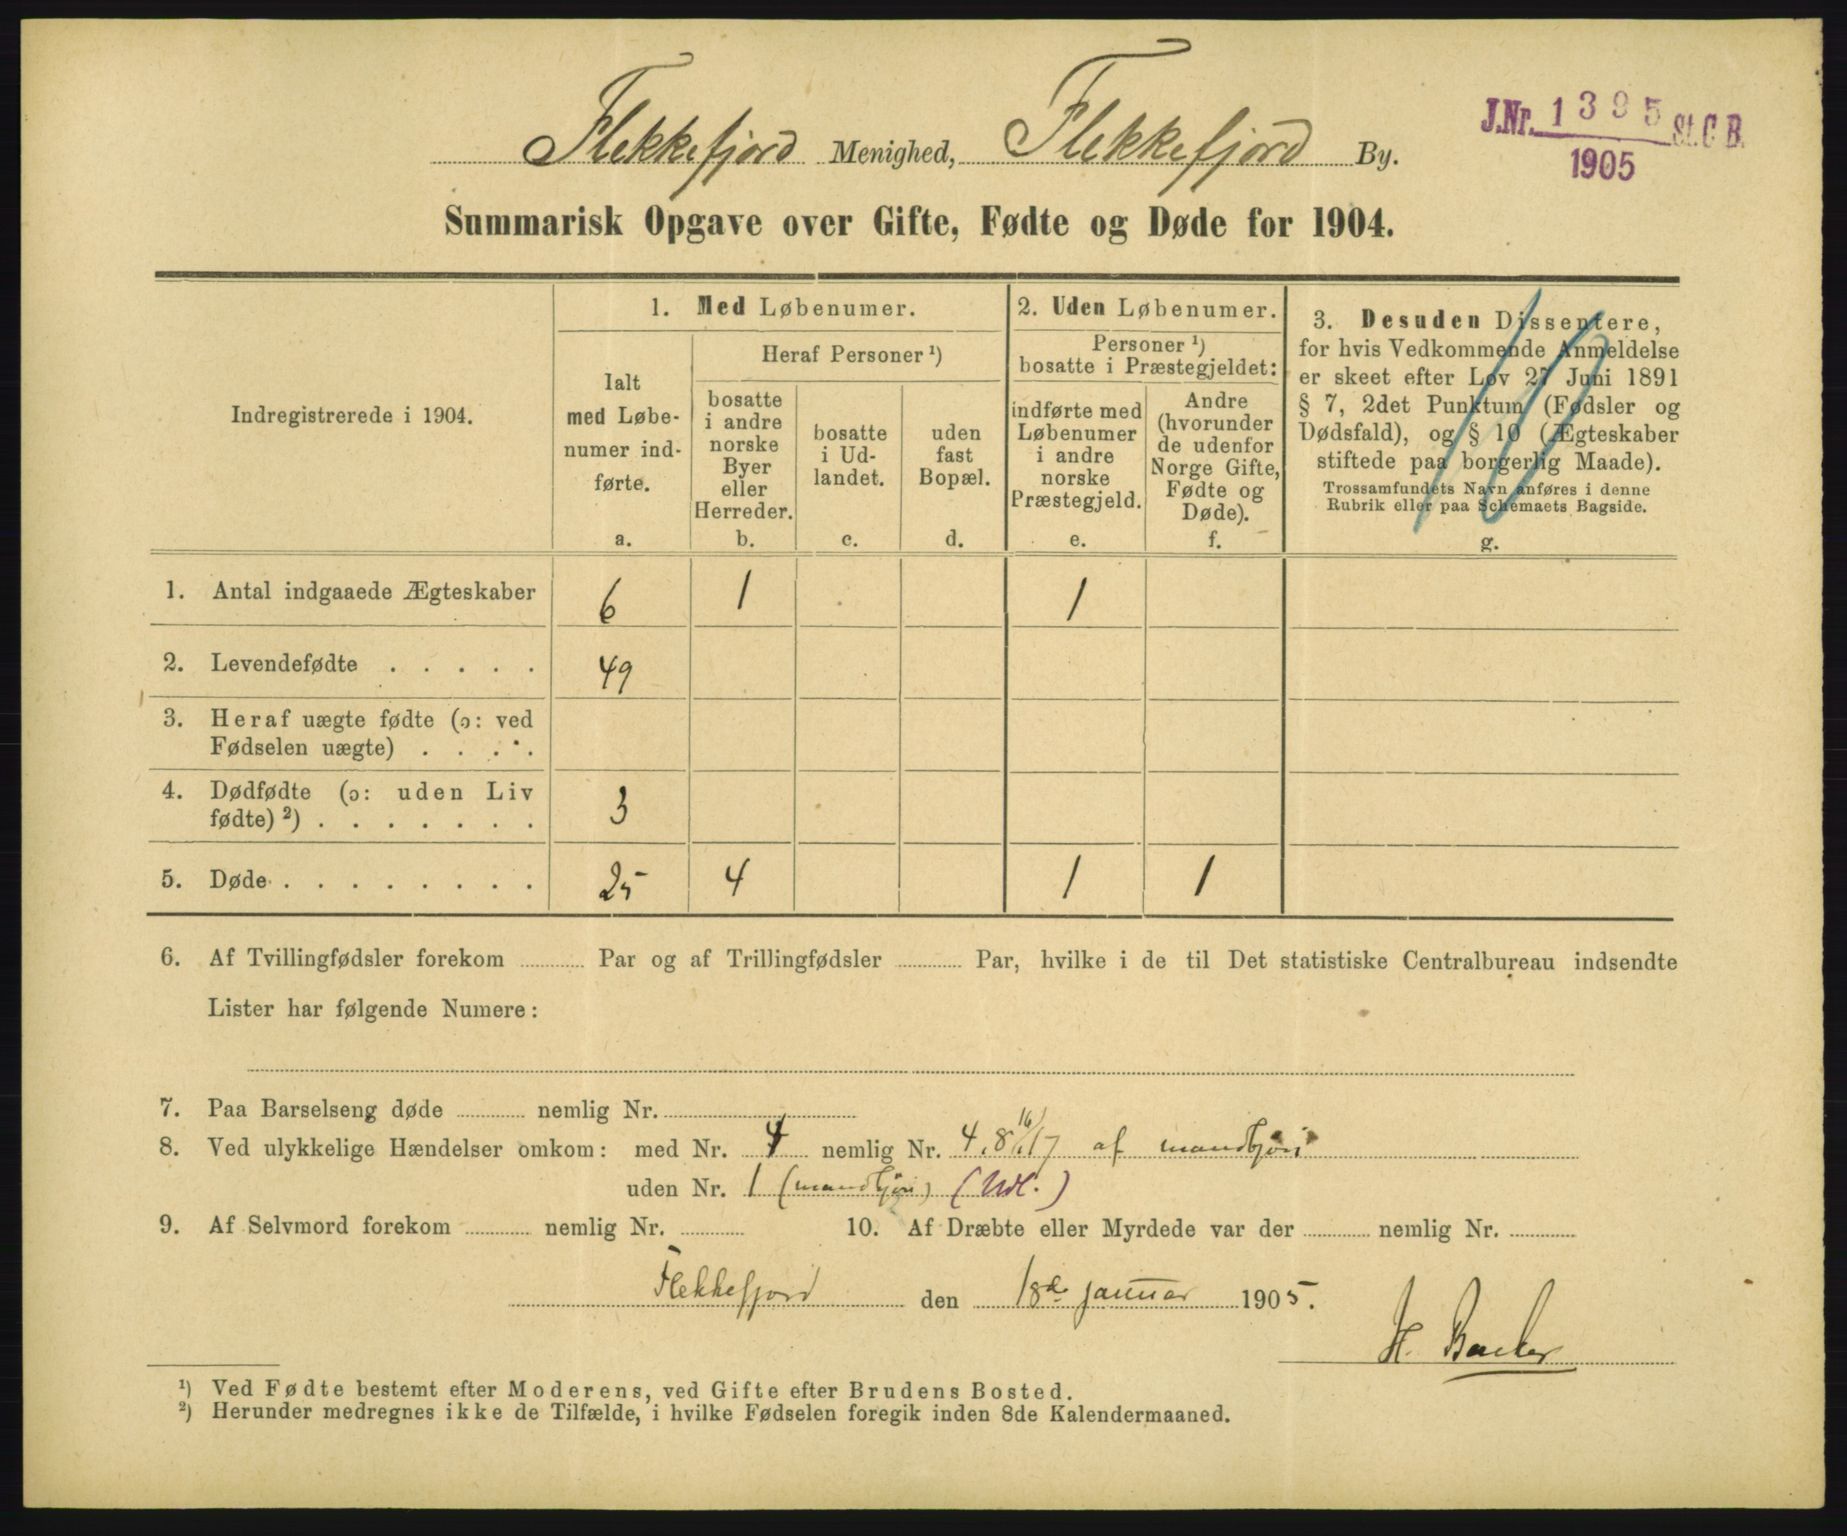 Flekkefjord Menighed, Flekkefjord By.
J.Nr. 1395 St. C B.
1905
Summarisk Opgave over Gifte, Fødte og Døde for 1904.
Indregistrerede i 1904.
1. Med Løbenumer.
Ialt med Løbe-numer ind-førte.
a.
Heraf Personer ¹)
bosatte i andre norske Byer eller Herreder.
b.
bosatte i Ud-landet.
c.
uden fast Bopæl.
d.
2. Uden Løbenumer.
Personer ¹)
bosatte i Præstegjeldet:
indførte med Løbenumer i andre norske Præstegjeld.
e.
Andre (hvorunder de udenfor Norge Gifte, Fødte og Døde).
f.
3. Desuden Dissentere,
for hvis Vedkommende Anmeldelse
er skeet efter Lov 27 Juni 1891
§ 7, 2det Punktum (Fødsler og
Dødsfald), og § 10 (Ægteskaber
stiftede paa borgerlig Maade).
Trossamfundets Navn anføres i denne
Rubrik eller paa Schemaets Bagside.
g.
1. Antal indgaaede Ægteskaber 6 1 1
2. Levendefødte . . . . . 49
3. Heraf uægte fødte (ɔ: ved
Fødselen uægte) . . . .
4. Dødfødte (ɔ: uden Liv
fødte) ²) . . . . . . . 3
5. Døde . . . . . . . . 25 4 1 1
6. Af Tvillingfødsler forekom Par og af Trillingfødsler Par, hvilke i de til Det statistiske Centralbureau indsendte
Lister har følgende Numere:
7. Paa Barselseng døde nemlig Nr.
8. Ved ulykkelige Hændelser omkom: med Nr. 4 nemlig Nr. 4, 8, 16, 17 af mandkjøn
uden Nr. 1 (mandkjøn) (Udl.)
9. Af Selvmord forekom nemlig Nr. 10. Af Dræbte eller Myrdede var der nemlig Nr.
Flekkefjord den 18de januar 1905.
H. Barker
¹) Ved Fødte bestemt efter Moderens, ved Gifte efter Brudens Bosted.
²) Herunder medregnes ikke de Tilfælde, i hvilke Fødselen foregik inden 8de Kalendermaaned.